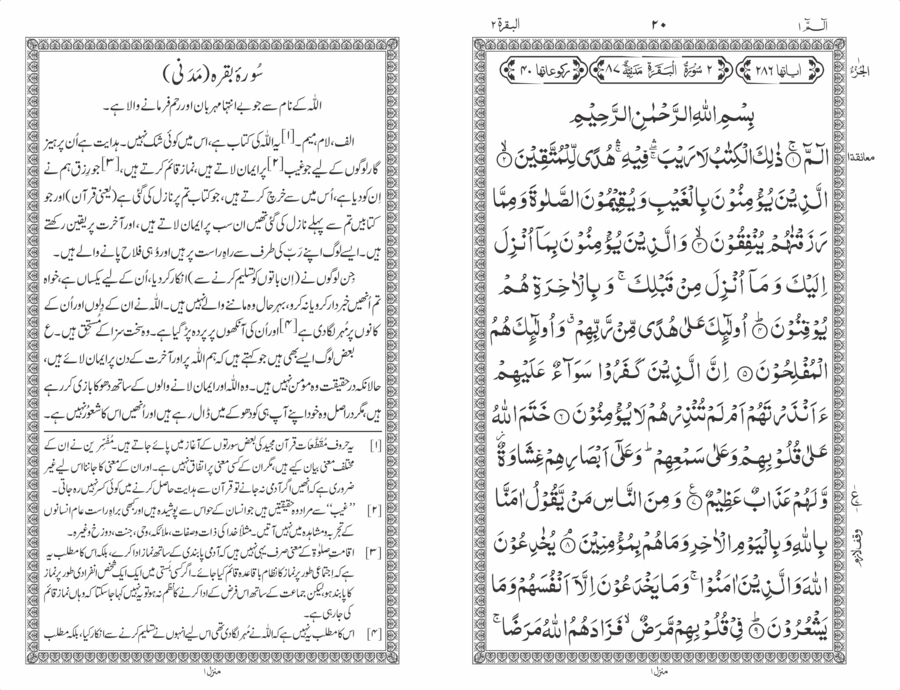 الٓمّٓ ۱
۲۰
البقرة ۲
اٰیاتها ۲۸۶
۲ سُوْرَةُ الْبَقَرَةِ مَدَنِيَّةٌ ۸۷
رکوعاتها ۴۰
الجزء
بِسْمِ اللهِ الرَّحْمٰنِ الرَّحِيْمِ
الٓمّٓ ۚ﴿۱﴾ ذٰلِكَ الْكِتٰبُ لَا رَيْبَ ۛ فِيْهِ ۛ هُدًى لِّلْمُتَّقِيْنَ ﴿۲﴾
معانقة ۱
الَّذِيْنَ يُؤْمِنُوْنَ بِالْغَيْبِ وَيُقِيْمُوْنَ الصَّلٰوةَ وَمِمَّا
رَزَقْنٰهُمْ يُنْفِقُوْنَ ﴿۳﴾ وَالَّذِيْنَ يُؤْمِنُوْنَ بِمَاۤ اُنْزِلَ
اِلَيْكَ وَمَاۤ اُنْزِلَ مِنْ قَبْلِكَ ۚ وَبِالْاٰخِرَةِ هُمْ
يُوْقِنُوْنَ ﴿۴﴾ اُولٰٓئِكَ عَلٰى هُدًى مِّنْ رَّبِّهِمْ ۙ وَاُولٰٓئِكَ هُمُ
الْمُفْلِحُوْنَ ﴿۵﴾ اِنَّ الَّذِيْنَ كَفَرُوْا سَوَآءٌ عَلَيْهِمْ
ءَاَنْذَرْتَهُمْ اَمْ لَمْ تُنْذِرْهُمْ لَا يُؤْمِنُوْنَ ﴿۶﴾ خَتَمَ اللهُ
عَلٰى قُلُوْبِهِمْ وَعَلٰى سَمْعِهِمْ ؕ وَعَلٰٓى اَبْصَارِهِمْ غِشَاوَةٌ ۫
وَّلَهُمْ عَذَابٌ عَظِيْمٌ ﴿۷﴾ وَمِنَ النَّاسِ مَنْ يَّقُوْلُ اٰمَنَّا
بِاللهِ وَبِالْيَوْمِ الْاٰخِرِ وَمَا هُمْ بِمُؤْمِنِيْنَ ۘ﴿۸﴾ يُخٰدِعُوْنَ
وقف لازم
اللهَ وَالَّذِيْنَ اٰمَنُوْا ۚ وَمَا يَخْدَعُوْنَ اِلَّاۤ اَنْفُسَهُمْ وَمَا
يَشْعُرُوْنَ ﴿۹﴾ فِيْ قُلُوْبِهِمْ مَّرَضٌ ۙ فَزَادَهُمُ اللهُ مَرَضًا ۚ
منزل ۱
سُورۂ بقرہ (مَدَنی)
اللہ کے نام سے جو بے انتہا مہربان اور رحم فرمانے والا ہے۔
الف، لام، میم۔[۱] یہ اللہ کی کتاب ہے، اس میں کوئی شک نہیں۔ ہدایت ہے اُن پرہیز
گار لوگوں کے لیے جو غیب[۲] پر ایمان لاتے ہیں، نماز قائم کرتے ہیں،[۳] جو رزق ہم نے
اُن کو دیا ہے، اُس میں سے خرچ کرتے ہیں، جو کتاب تم پر نازل کی گئی ہے (یعنی قرآن) اور جو
کتابیں تم سے پہلے نازل کی گئی تھیں ان سب پر ایمان لاتے ہیں، اور آخرت پر یقین رکھتے
ہیں۔ ایسے لوگ اپنے رَبّ کی طرف سے راہِ راست پر ہیں اور وُہی فلاح پانے والے ہیں۔
جِن لوگوں نے (اِن باتوں کو تسلیم کرنے سے) انکار کردیا، اُن کے لیے یکساں ہے، خواہ
تم انھیں خبردار کرو یا نہ کرو، بہرحال وہ ماننے والے نہیں ہیں۔ اللہ نے ان کے دِلوں اور اُن کے
کانوں پر مُہر لگادی ہے[۴] اور اُن کی آنکھوں پر پردہ پڑ گیا ہے۔ وہ سخت سزا کے مُستحق ہیں۔ ع
بعض لوگ ایسے بھی ہیں جو کہتے ہیں کہ ہم اللہ پر اور آخرت کے دن پر ایمان لائے ہیں،
حالانکہ درحقیقت وہ مؤمن نہیں ہیں۔ وہ اللہ اور ایمان لانے والوں کے ساتھ دھوکا بازی کررہے
ہیں، مگر دراصل وہ خود اپنے آپ ہی کو دھوکے میں ڈال رہے ہیں اور انھیں اس کا شعور نہیں ہے۔
[۱] یہ حروفِ مُقطّعات قرآن مجید کی بعض سورتوں کے آغاز میں پائے جاتے ہیں۔ مُفسّرین نے ان کے
مختلف معنی بیان کیے ہیں، مگر ان کے کسی معنی پر اتفاق نہیں ہے۔ اور ان کے معنی کا جاننا اس لیے غیر
ضروری ہے کہ انھیں اگر آدمی نہ جانے تو قرآن سے ہدایت حاصل کرنے میں کوئی کسر نہیں رہ جاتی۔
[۲] ”غیب“ سے مراد وہ حقیقتیں ہیں جو انسان کے حواس سے پوشیدہ ہیں اور کبھی براہِ راست عام انسانوں
کے تجربہ و مشاہدہ میں نہیں آتیں۔ مثلاً خدا کی ذات و صفات، ملائکہ، وحی، جنت، دوزخ وغیرہ۔
[۳] اقامتِ صلوٰۃ کے معنی صرف یہی نہیں ہیں کہ آدمی پابندی کے ساتھ نماز ادا کرے، بلکہ اس کا مطلب یہ
ہے کہ اِجتماعی طور پر نماز کا نظام باقاعدہ قائم کیا جائے۔ اگر کسی بستی میں ایک ایک شخص انفرادی طور پر نماز
کا پابند ہو، لیکن جماعت کے ساتھ اس فرض کے ادا کرنے کا نظم نہ ہو تو یہ نہیں کہا جاسکتا کہ وہاں نماز قائم
کی جارہی ہے۔
[۴] اس کا مطلب یہ نہیں ہے کہ اللہ نے مُہر لگادی تھی اس لیے انہوں نے تسلیم کرنے سے انکار کیا، بلکہ مطلب
منزل ۱